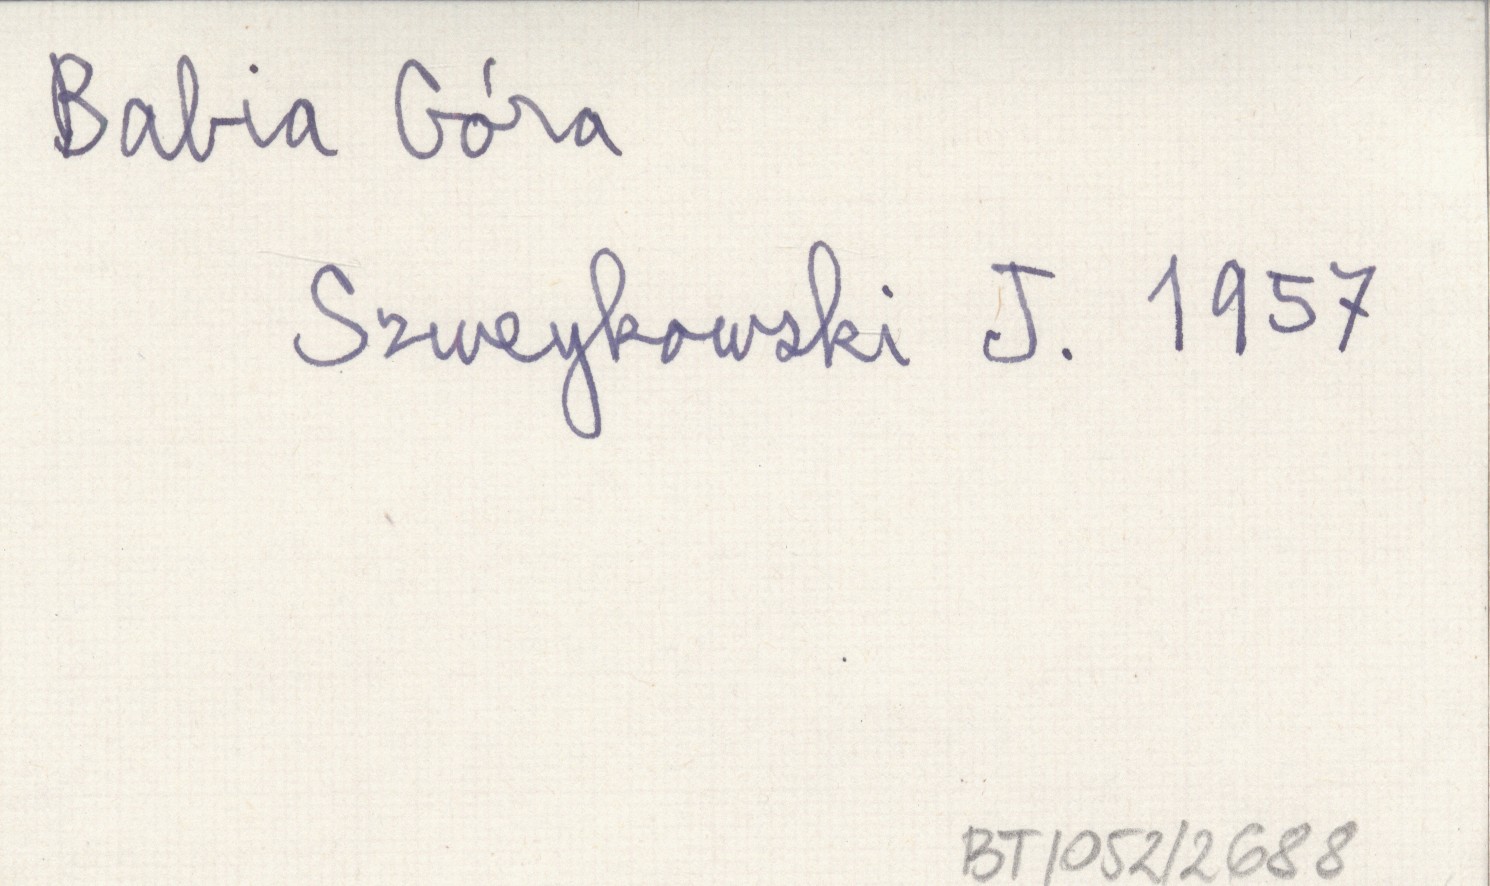 Babia Góra
Szweykowski J. 1957
BT/052/2688